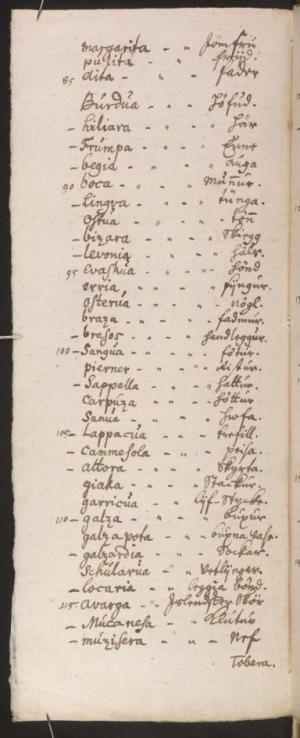 margarita - - Jómfrú
púsita - - frijd.
85 dita - - fader
Búrdúa - - höfúd.
- hiliara - - hár
- Frúmpa - - Enne
- begia - - Auga
90 boca - - - múnnúr.
- Lingva - - túnga.
ostúa - -
- bizara - - - Skiegg
- Levonia - - háls.
95 Evaskúa - - hönd
orria - - - pijngúr.
osterúa - - nögl.
braza - - - fadmúr.
- brasos - - handleggúr.
100 - Sangúa - - fótúr.
pierner - - Ristúr.
- Sappella - - hattúr.
Carpúza - - höttúr
Sanúa - - húfa.
105 - Lappacúa - - trefill.
- Cammesola - - peisa.
- attora - - Skyrta.
giaka - - Stackúr.
garricúa - - lijf-Stycke.
110 - galza - - búxúr
galzapota - - búxna vase
- galzardia - - Sockar.
Schúlarúa - Vetlijngar.
- locaria - leggia bönd.
115 avarga - Islendsker Skór
- Múcanesa - Klútúr
- múzisera - - Nef
Tobera.